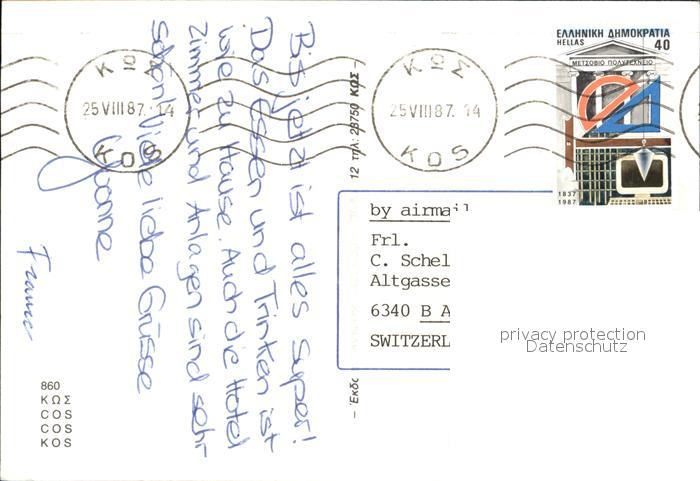 Bis jetzt ist alles super!
Das Essen und Trinken ist
wie zu Hause. Auch die Hotel
Zimmer und Anlagen sind sehr
schön. Viele liebe Grüsse
Yvonne
860
ΚΩΣ
COS
COS
KOS
ΚΩΣ
25 VIII 87. 14
KOS
ΚΩΣ
25 VIII 87. 14
KOS
12 τηλ: 28750 ΚΩΣ –
– Έκδ
ΕΛΛΗΝΙΚΗ ΔΗΜΟΚΡΑΤΙΑ
HELLAS 40
ΜΕΤΣΟΒΙΟ ΠΟΛΥΤΕΧΝΕΙΟ
1837
1987
by airmai
Frl.
C. Schel
Altgasse
6340 B A
SWITZERL
privacy protection
Datenschutz